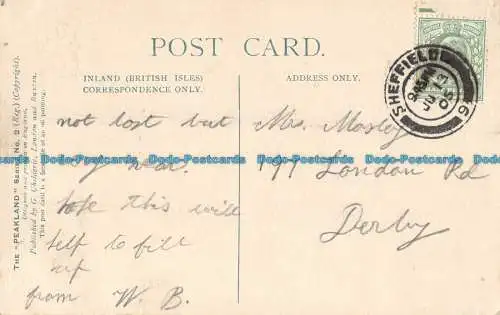 POST CARD.
INLAND (BRITISH ISLES)
CORRESPONDENCE ONLY.
ADDRESS ONLY.
SHEFFIELD
6
The "PEAKLAND" Series, No. (Reg.) (Copyright).
Published by G. London and Buxton.
This post card is a facsimile of an oil painting.
not lost but
hope this will
self to fill
up
from W. B.
Mrs. Mosley
197 London Rd
Derby
Dodo-Postcards Dodo-Postcards Dodo-Postcards Dodo-Postcards Dodo-Postcards